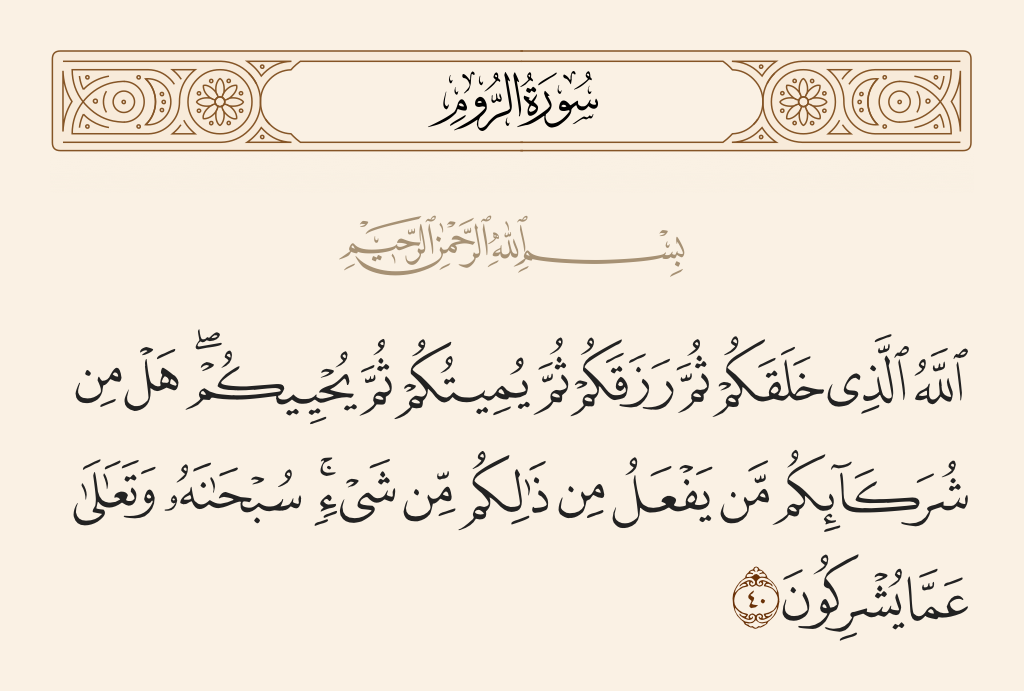 سُورَةُ الرُّومِ
بِسْمِ ٱللَّهِ ٱلرَّحْمَٰنِ ٱلرَّحِيمِ
ٱللَّهُ ٱلَّذِى خَلَقَكُمْ ثُمَّ رَزَقَكُمْ ثُمَّ يُمِيتُكُمْ ثُمَّ يُحْيِيكُمْ ۖ هَلْ مِن
شُرَكَآئِكُم مَّن يَفْعَلُ مِن ذَٰلِكُم مِّن شَىْءٍ ۚ سُبْحَٰنَهُۥ وَتَعَٰلَىٰ
عَمَّا يُشْرِكُونَ ٤٠